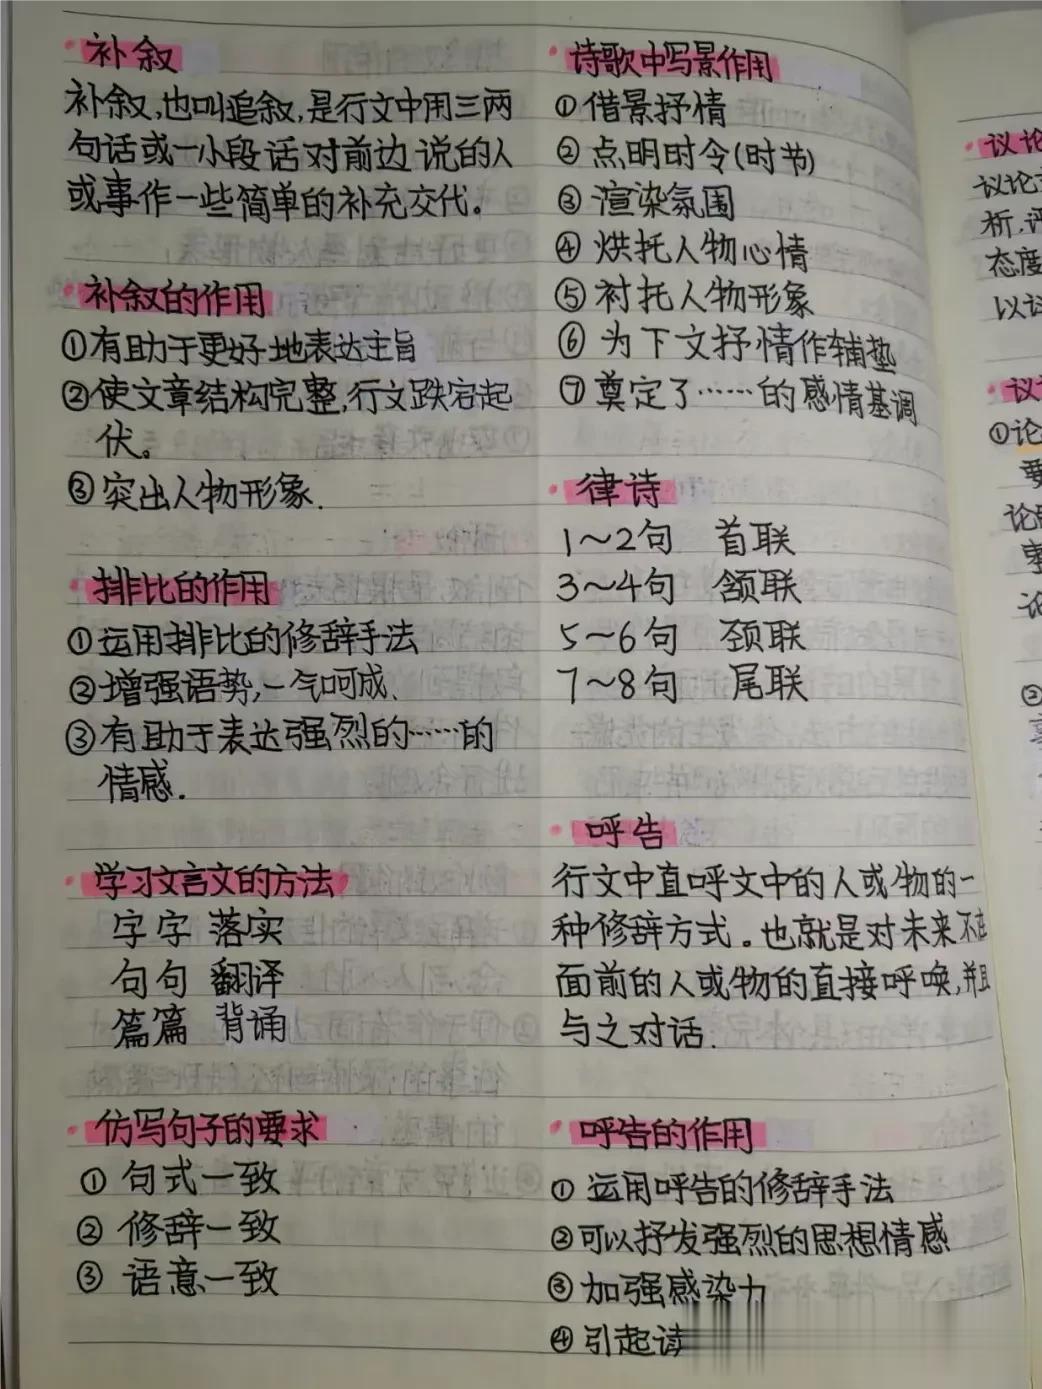 补叙
补叙,也叫追叙,是行文中用三两
句话或一小段话对前边说的人
或事作一些简单的补充交代。
补叙的作用
①有助于更好地表达主旨
②使文章结构完整,行文跌宕起
伏。
③突出人物形象.
排比的作用
①运用排比的修辞手法
②增强语势,一气呵成.
③有助于表达强烈的……的
情感.
学习文言文的方法
字字 落实
句句 翻译
篇篇 背诵
仿写句子的要求
① 句式一致
② 修辞一致
③ 语意一致
诗歌中写景作用
①借景抒情
②点明时令(时节)
③渲染氛围
④烘托人物心情
⑤衬托人物形象
⑥为下文抒情作辅垫
⑦奠定了……的感情基调
律诗
1～2句 首联
3～4句 颔联
5～6句 颈联
7～8句 尾联
呼告
行文中直呼文中的人或物的一
种修辞方式。也就是对未来不在
面前的人或物的直接呼唤,并且
与之对话.
呼告的作用
① 运用呼告的修辞手法
②可以抒发强烈的思想情感
③ 加强感染力
④ 引起读
议论
析,评
态度
①论
要